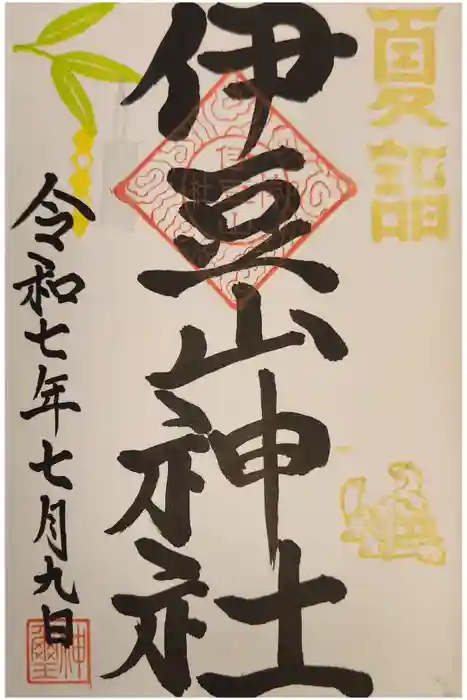 夏詣
伊豆山神社
令和七年七月九日
神璽